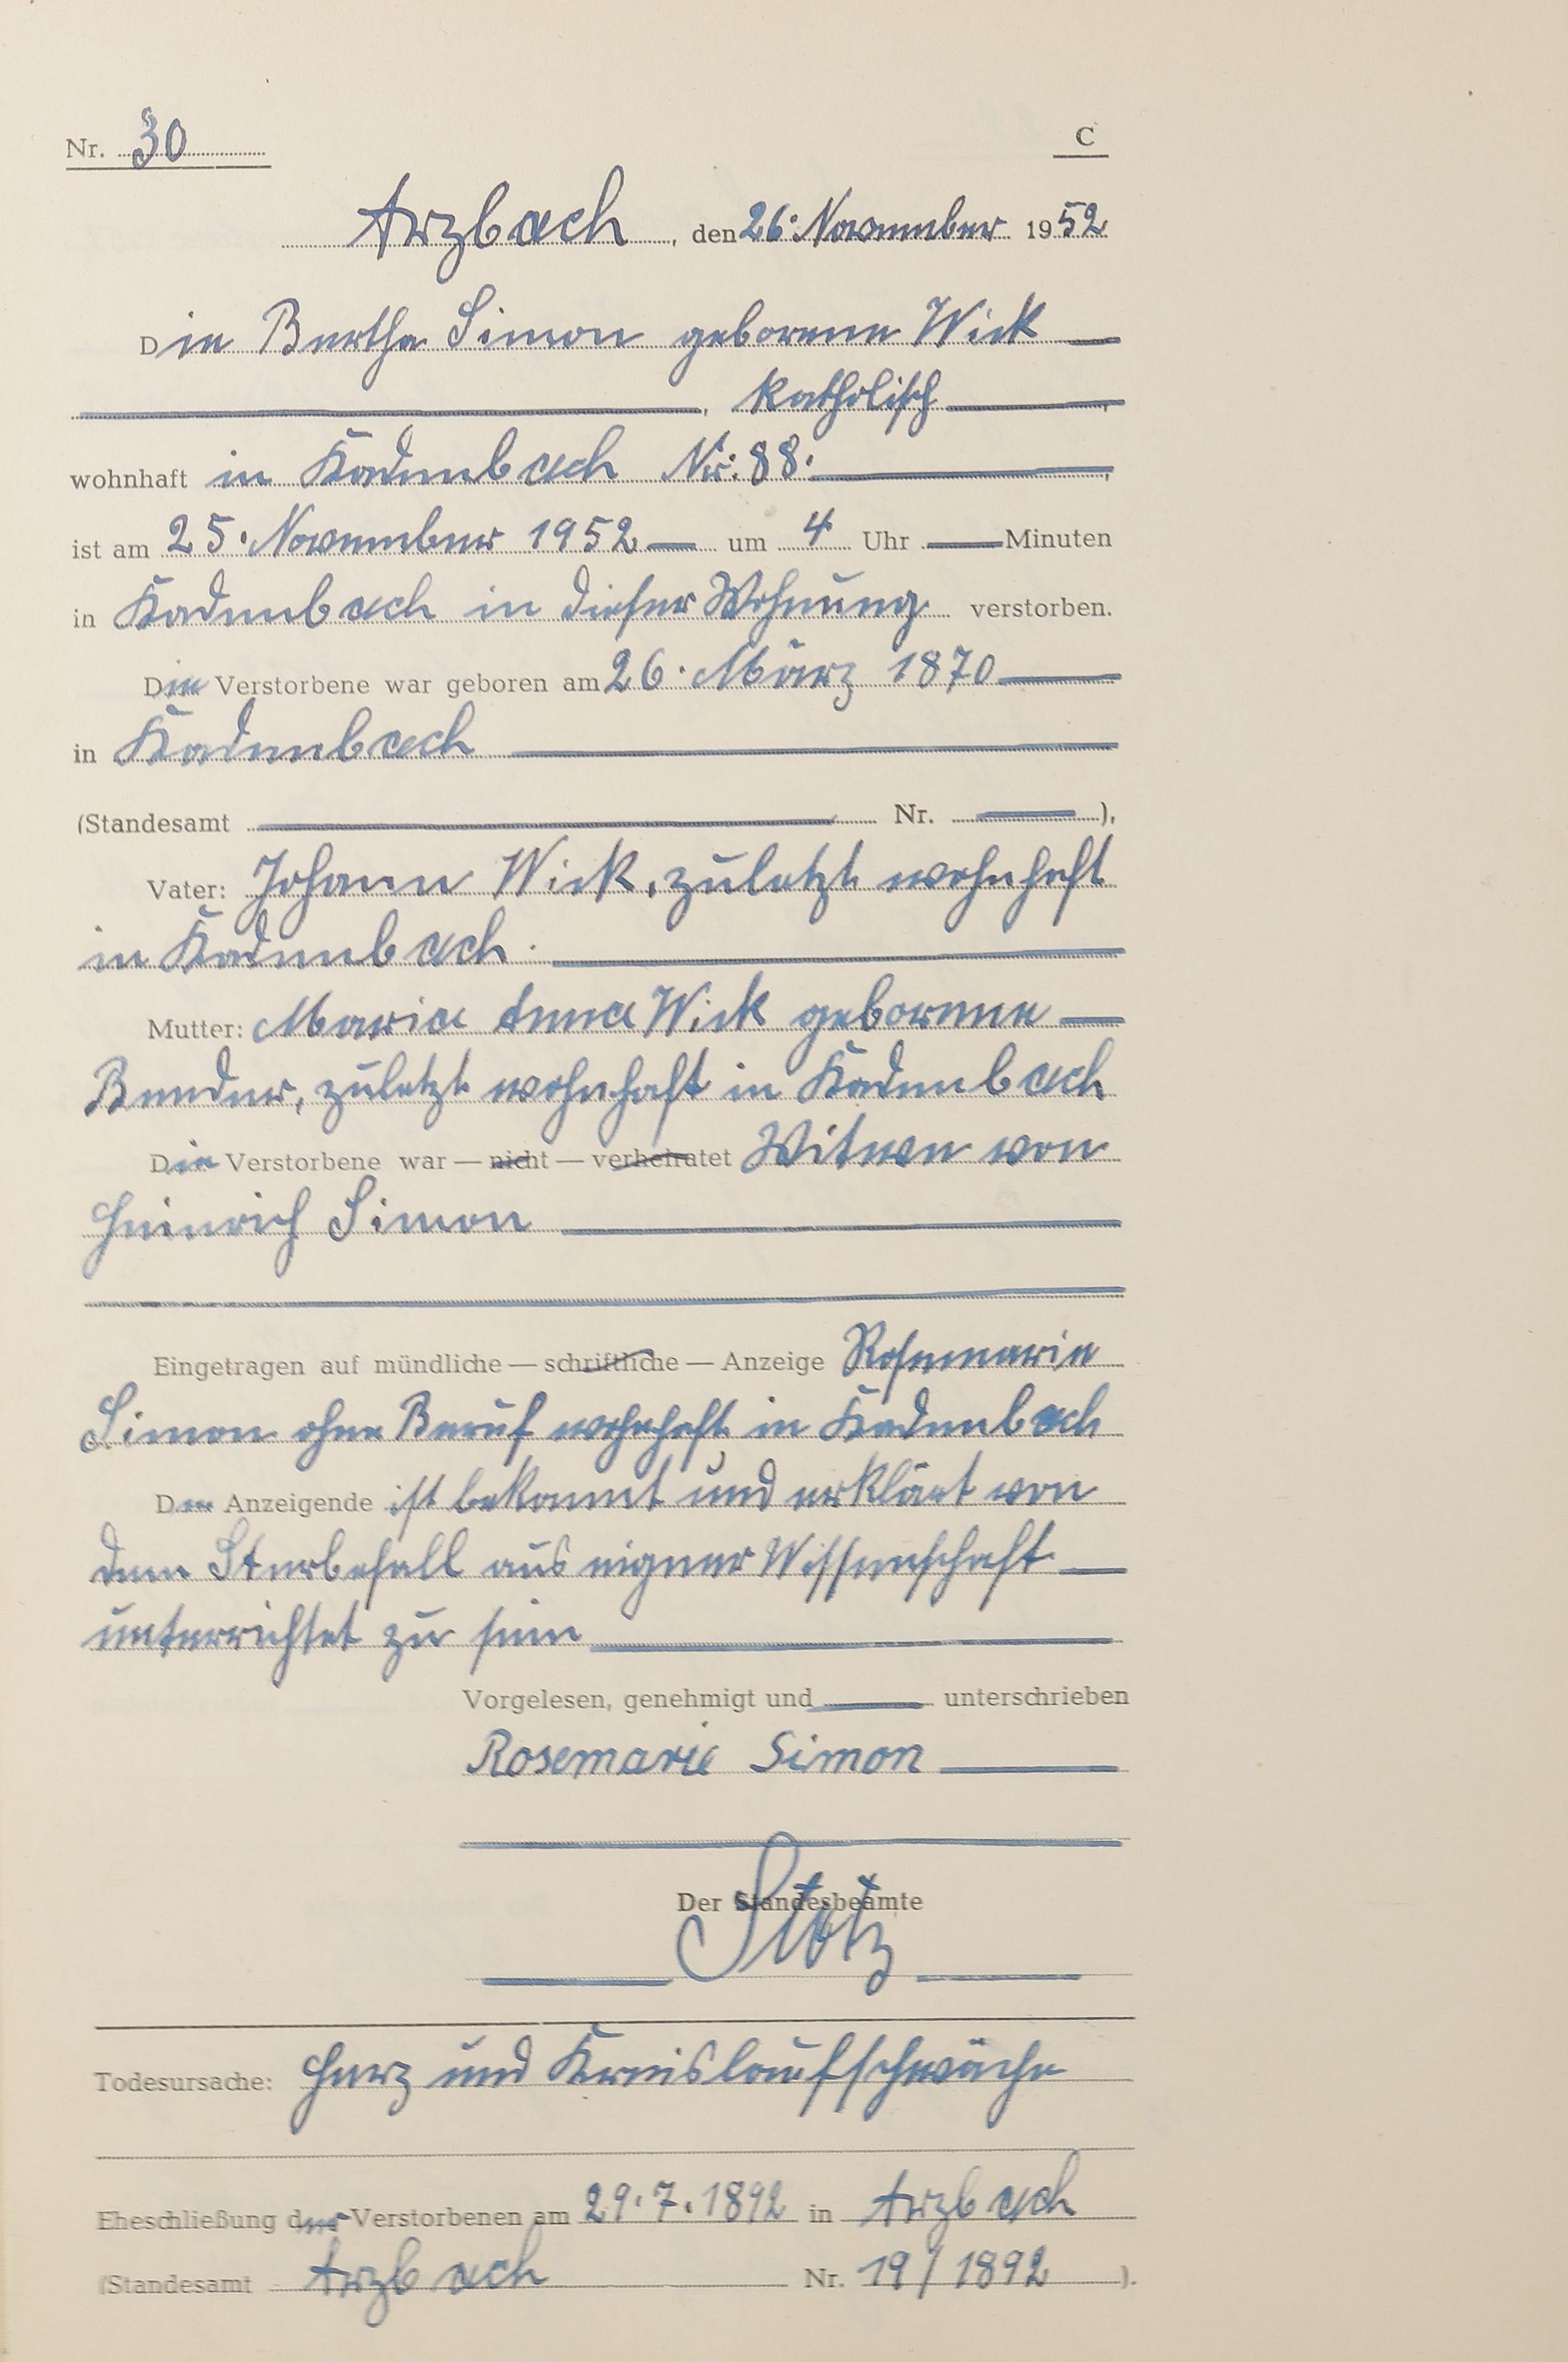 Nr. 30
C
Arzbach, den 26. November 1952
Die Bertha Simon geborene Wick
, katholisch,
wohnhaft in Kadenbach Nr. 88.,
ist am 25. November 1952 um 4 Uhr Minuten
in Kadenbach in dieser Wohnung verstorben.
Die Verstorbene war geboren am 26. März 1870
in Kadenbach
(Standesamt Nr. ),
Vater: Johann Wick, zuletzt wohnhaft
in Kadenbach.
Mutter: Maria Anna Wick geborene
Bender, zuletzt wohnhaft in Kadenbach
Die Verstorbene war — nicht — verheiratet Witwe von
Heinrich Simon
Eingetragen auf mündliche — schriftliche — Anzeige Rosemarie
Simon ohne Beruf wohnhaft in Kadenbach
Die Anzeigende ist bekannt und erklärt von
dem Sterbefall aus eigner Wissenschaft
unterrichtet zu sein
Vorgelesen, genehmigt und unterschrieben
Rosemarie Simon
Der Standesbeamte
Stotz
Todesursache: Herz und Kreislaufschwäche
Eheschließung der Verstorbenen am 29.7.1892 in Arzbach
(Standesamt Arzbach Nr. 19/1892 ).